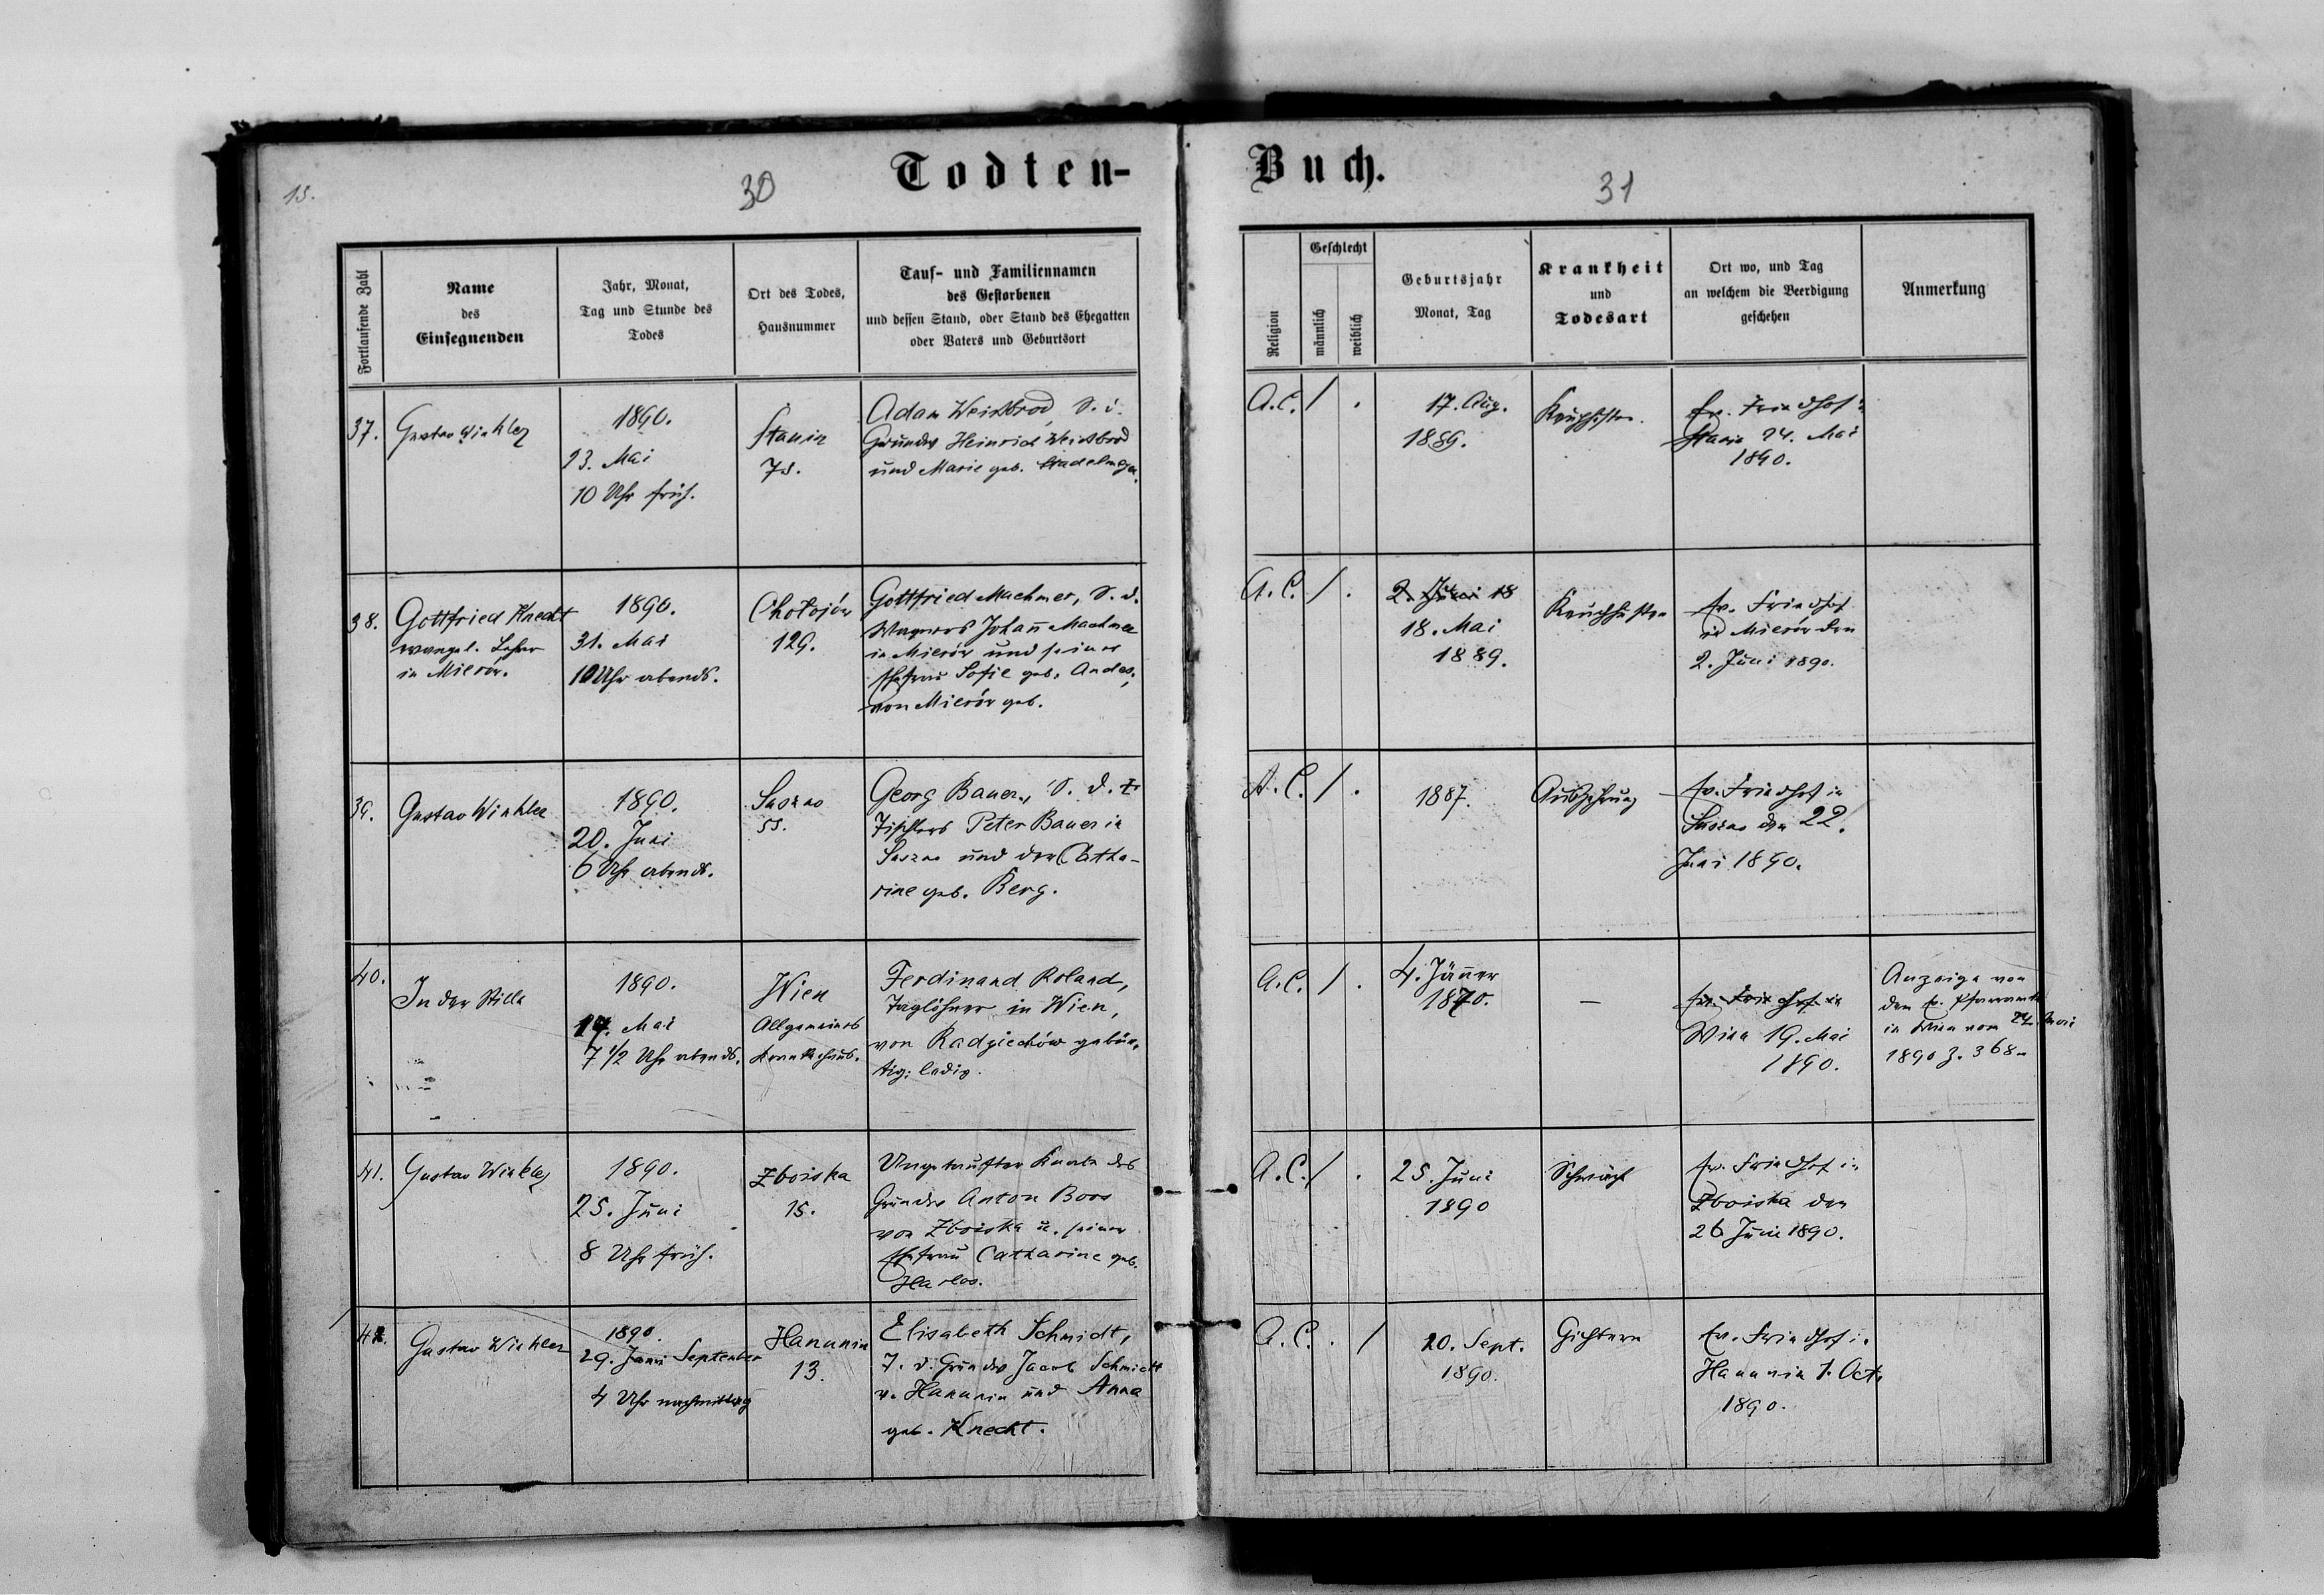 15.
30
Todten-
Buch.
31
Fortlaufende Zahl
Name
des
Einsegnenden
Jahr, Monat,
Tag und Stunde des
Todes
Ort des Todes,
Hausnummer
Tauf- und Familiennamen
des Gestorbenen
und dessen Stand, oder Stand des Ehegatten
oder Vaters und Geburtsort
Religion
Geschlecht
männlich
weiblich
Geburtsjahr
Monat, Tag
Krankheit
und
Todesart
Ort wo, und Tag
an welchem die Beerdigung
geschehen
Anmerkung
37.
Gustav Winkler
1890.
23. Mai
10 Uhr früh.
Stanin
78.
Adam Weissbrod, S. d.
Grundw Heinrich Weissbrod
und Marie geb.
A.C. / .
17. Aug.
1889.
Keuchhusten.
Ev. Friedhof in
Stanin 24. Mai
1890.
38.
Gottfried Knecht
evangel. Lehrer
in Mierów.
1890.
31. Mai
10 Uhr abends.
Chołojów
129.
Gottfried Machmer, S. d.
Wagners Johañ Machmer
in Mierów und seiner
Ehefrau Sofie geb. Andes,
von Mierów geb.
A.C. / .
2. Juni 18
18. Mai
1889.
Keuchhusten
Ev. Friedhof
in Mierów den
2. Juni 1890.
39.
Gustav Winkler
1890.
20. Juni
6 Uhr abends.
Saszno
55.
Georg Bauer, S. d. +
Tischlers Peter Bauer in
Saszno und der Catha-
rine geb. Berg.
A.C. / .
1887.
Auszehrung
Ev. Friedhof in
Saszno den 22.
Juni 1890.
40.
In der Stille
1890.
17. Mai
7 1/2 Uhr abends.
Wien
Allgemeines
Krankenhaus.
Ferdinand Roland,
Taglöhner in Wien,
von Radziechów gebür-
tig; ledig.
A.C. / .
4. Jäñer
1870.
—
Ev. Friedhof in
Wien 19. Mai
1890.
Anzeige von
dem Ev. Pfarramte
in Wien vom Mai
1890 Z. 368.
41.
Gustav Winkler
1890.
25. Juni
8 Uhr früh.
Zboiska
15.
Ungetaufter Knabe des
Grundw Anton Boos
von Zboiska u. seiner
Ehefrau Catharine geb.
Harlos.
A.C. / .
25. Juni
1890
Schwäche
Ev. Friedhof in
Zboiska den
26 Juni 1890.
42.
Gustav Winkler
1890.
29. Juni September
4 Uhr nachmittag
Hanunin
13.
Elisabeth Schmidt,
T. d. Grundw Jacob Schmidt
v. Hanunin und Anna
geb. Knecht.
A.C. . /
20. Sept.
1890.
Gichtern
Ev. Friedhof in
Hanunin 1. Oct.
1890.